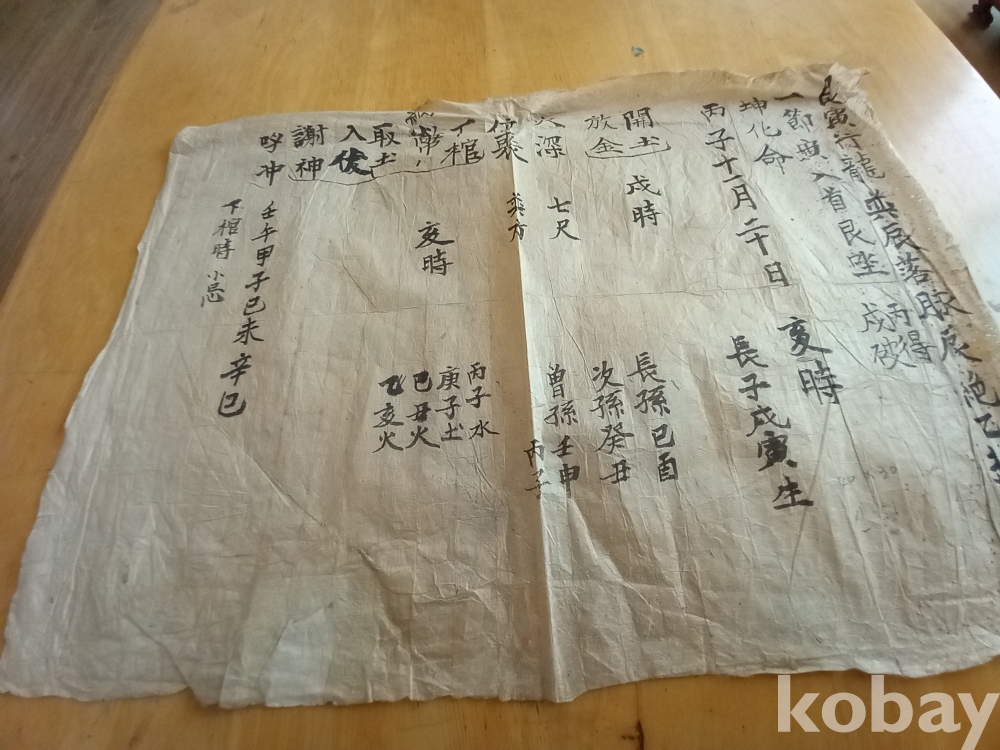 艮寅行龍 巽辰落脉 辰
一節 入首艮坐 丙得 戌破
坤化命
丙子十一月二十日 亥時 長子戊寅生
開土 戌時 長孫已酉
放金 次孫癸丑
深 七尺 曾孫壬申
丙子
巽方
下棺 丙子水
亥時 庚子土
取土 已丑火
入 乙亥火
謝神
呼冲 壬午甲子已未辛巳
下棺時 小忌
kobay